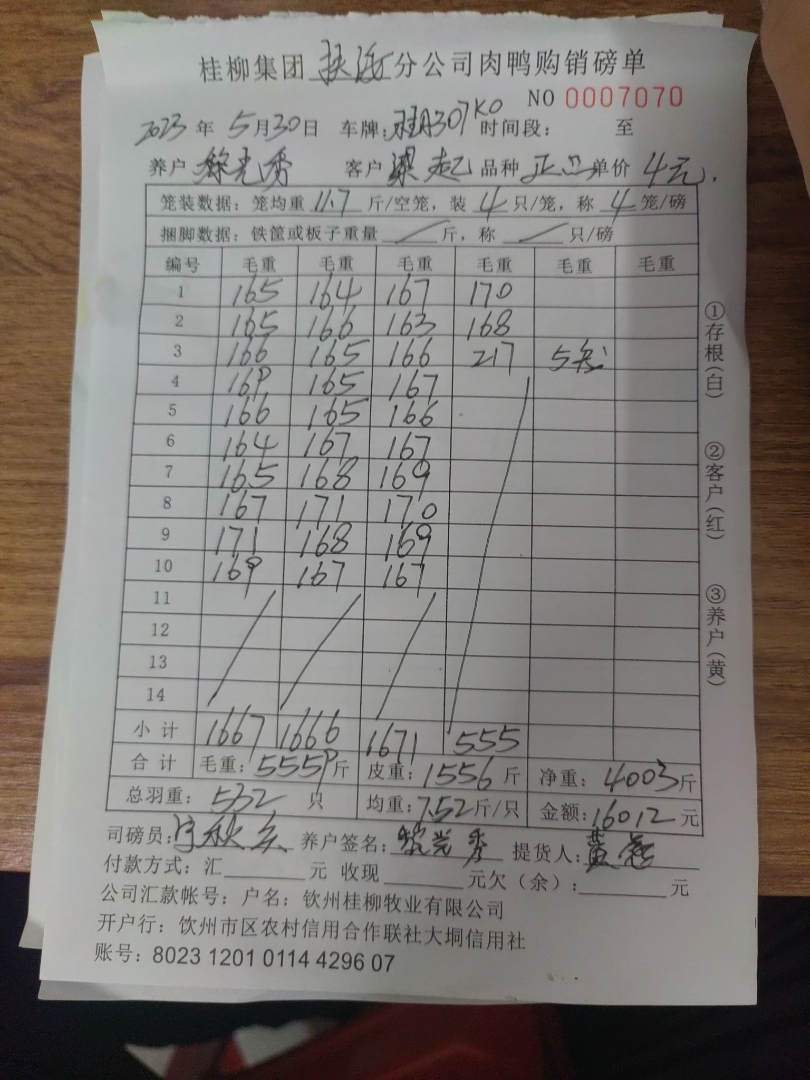 桂柳集团 扶 分公司肉鸭购销磅单
NO 0007070
2023 年 5月30日 车牌: 时间段: 至
养户 秀 客户 梁 品种 正品 单价 4元.
笼装数据: 笼均重 11.7 斤/空笼, 装 4 只/笼, 称 4 笼/磅
捆脚数据: 铁筐或板子重量 / 斤, 称 / 只/磅
编号 毛重 毛重 毛重 毛重 毛重 毛重
1 165 164 167 170
2 165 166 163 168
3 166 165 166 217 5笼
4 169 165 167
5 166 165 166
6 164 167 167
7 165 168 169
8 167 171 170
9 171 168 169
10 169 167 167
11
12
13
14
小计 1667 1666 1671 555
合计 毛重: 5559斤 皮重: 1556 斤 净重: 4003斤
总羽重: 532 只 均重: 7.52斤/只 金额: 16012 元
司磅员: 养户签名: 秀 提货人: 黄
付款方式: 汇 元 收现 元欠(余): 元
公司汇款帐号: 户名; 钦州桂柳牧业有限公司
开户行: 钦州市区农村信用合作联社大垌信用社
账号: 8023 1201 0114 4296 07
①存根(白)
②客户(红)
③养户(黄)